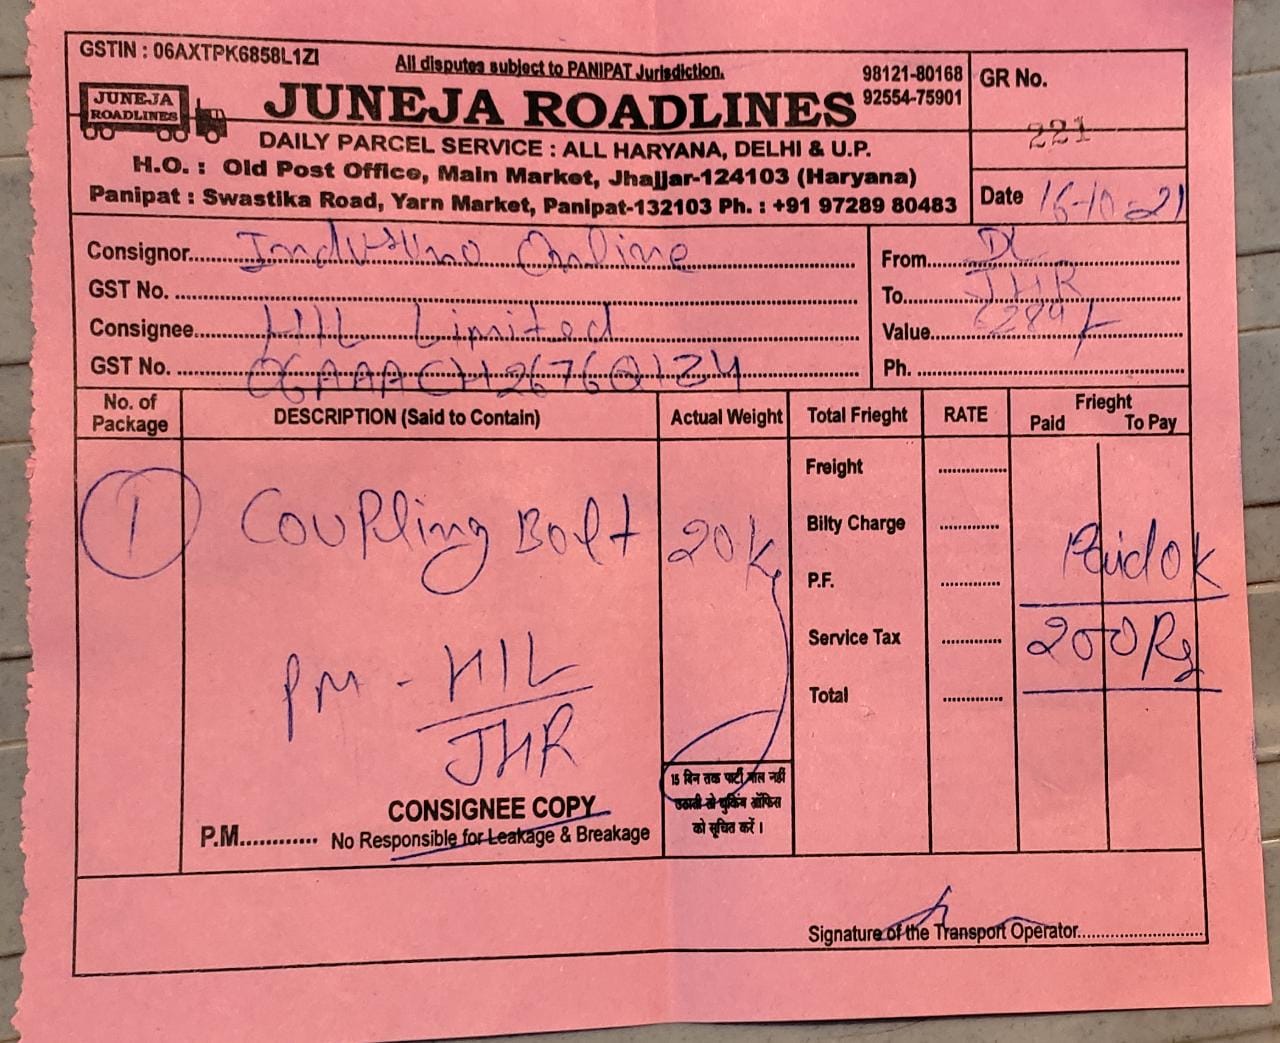 GSTIN : 06AXTPK6858L1ZI
All disputes subject to PANIPAT Jurisdiction.
98121-80168
92554-75901
JUNEJA ROADLINES
JUNEJA ROADLINES
DAILY PARCEL SERVICE : ALL HARYANA, DELHI & U.P.
H.O. : Old Post Office, Main Market, Jhajjar-124103 (Haryana)
Panipat : Swastika Road, Yarn Market, Panipat-132103 Ph. : +91 97289 80483
GR No.
221
Date 16-10-21
Consignor Industuno Online
GST No.
Consignee HIL Limited
GST No. 06AAACH2676Q1Z4
From DL
To JHR
Value
Ph.
No. of Package
DESCRIPTION (Said to Contain)
Actual Weight
Total Frieght
RATE
Frieght
Paid To Pay
1 Coupling Bolt 20 Kg
Freight
Bilty Charge
P.F.
Service Tax
Total
Paid OK
200 Rs
PM - HIL
JHR
CONSIGNEE COPY
P.M............ No Responsible for Leakage & Breakage
15 दिन तक पार्टी माल नहीं
उठाती तो बुकिंग ऑफिस
को सूचित करें।
Signature of the Transport Operator